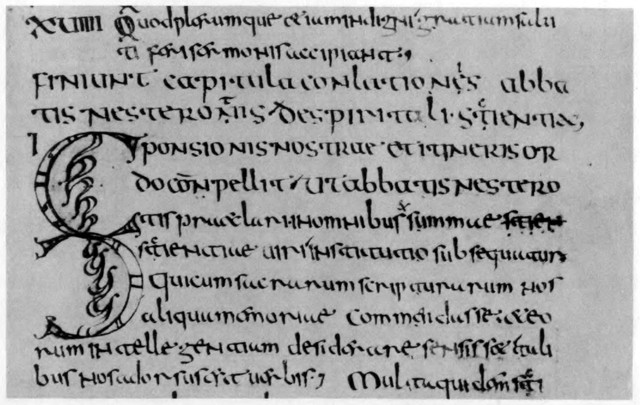 XVIIII Quod plerumque etiam indigni gratiam salu
ti feri sermonis accipiant;
FINIUNT capitula conlationes abba
tis nesterotis de spiritali scientia,
I SPONSIONIS NOSTRAE ET ITINERIS OR
do conpellit ut abbatis nestero
tis praeclari in omnibus summae scien
scientiae viri institutio subsequatur
Qui cum sacrarum scripturarum nos
aliqua memoriae commendasse et eo
rum intellegentiam desiderare sensisset tali
bus nos adorsus est verbis; Multa quidem